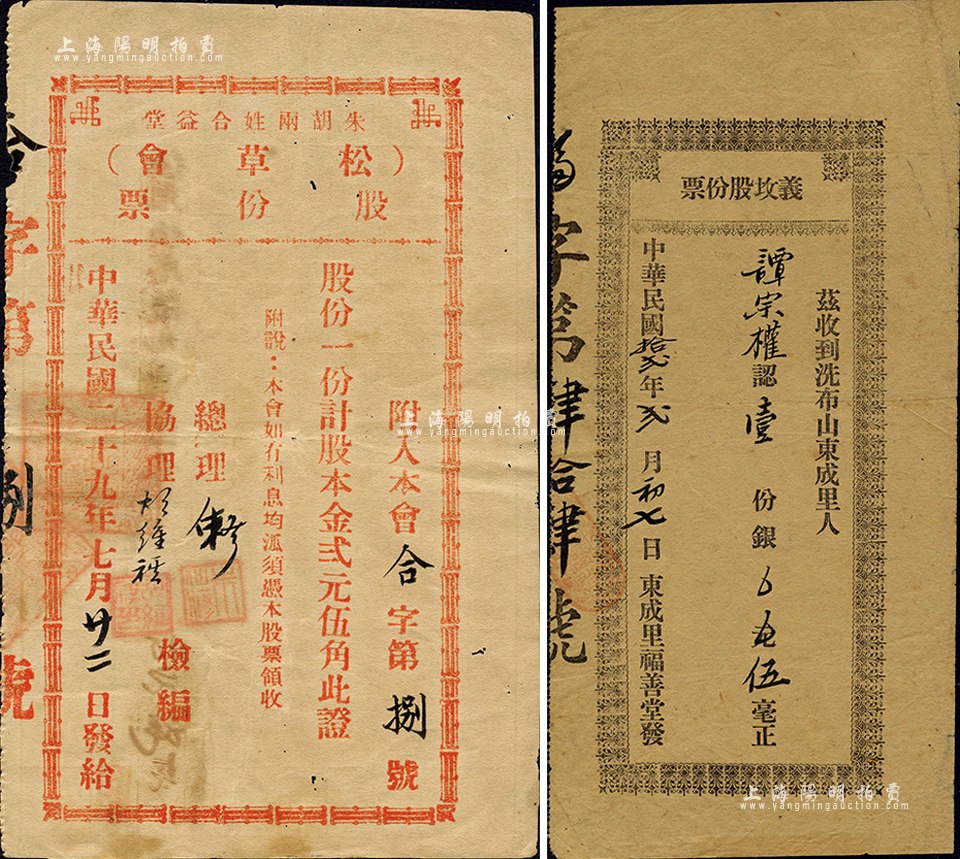 上海陽明拍賣
www.yangmingauction.com
朱胡兩姓合益堂
（松草會）
股份票
附入本會合字第捌號
股份一份計股本金弍元伍角此證
附說：本會如有利息均派須憑本股票領收
總理
協理 胡維祺
檢編
中華民國二十九年七月廿二日發給
合字第捌號
上海陽明拍賣
www.yangmingauction.com
義坟股份票
茲收到洗布山東成里人
譚宗權認壹份銀 伍毫正
中華民國拾弍年弍月初七日東成里福善堂發
福字第肆拾肆號
上海陽明拍賣
www.yangmingauction.com